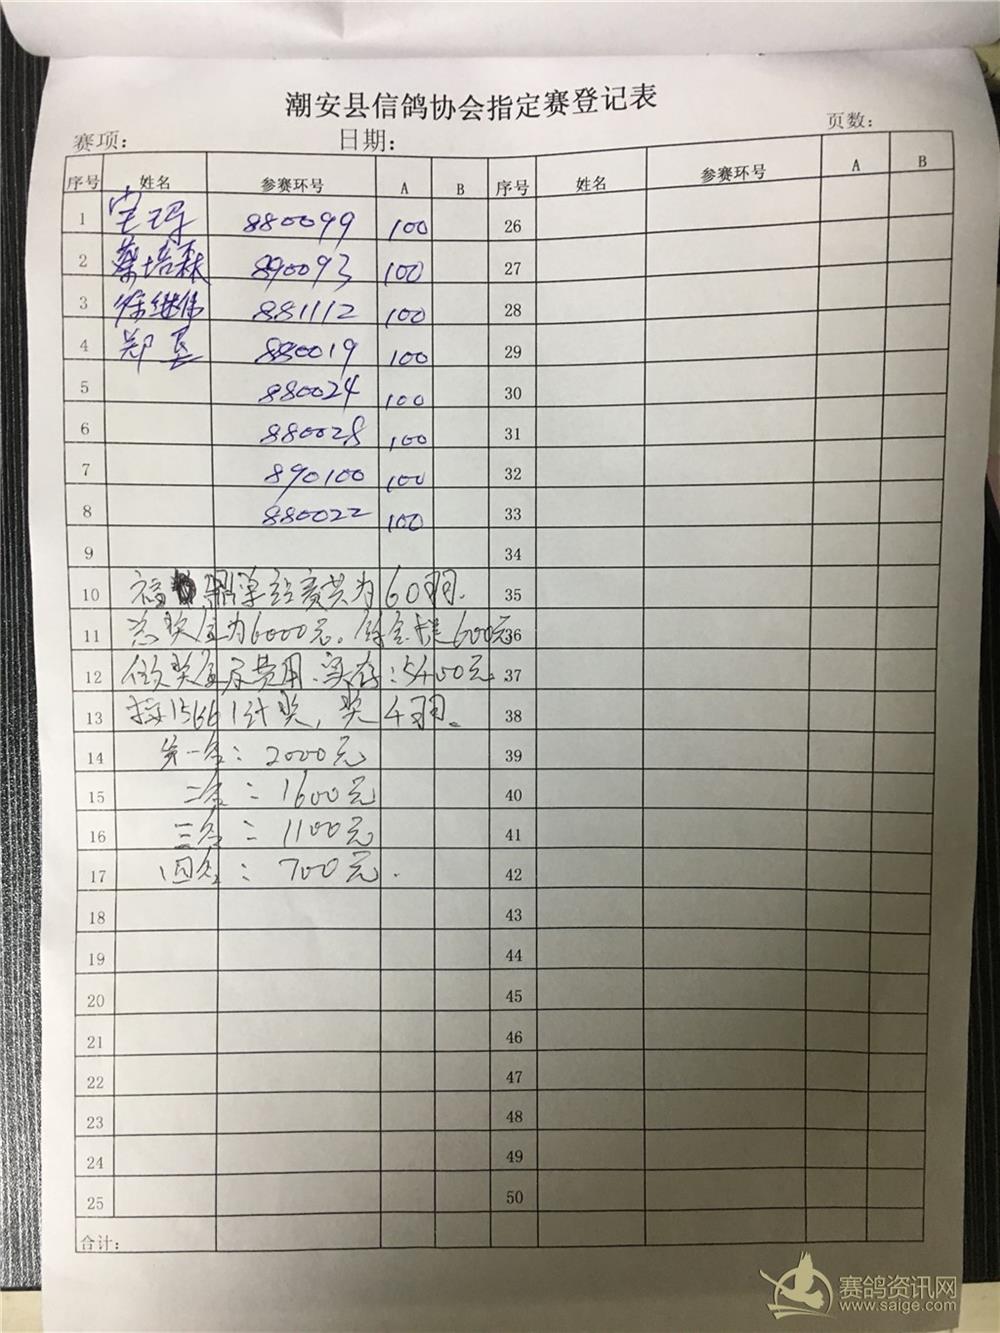 潮安县信鸽协会指定赛登记表
赛项： 日期： 页数：
序号 姓名 参赛环号 A B 序号 姓名 参赛环号 A B
1 880099 100 26
2 蔡培森 890093 100 27
3 徐继伟 881112 100 28
4 郑 880019 100 29
5 880024 100 30
6 880028 100 31
7 890100 100 32
8 880022 100 33
9 34
10 福鼎单组赛共为60羽. 35
11 总奖金为6000元。 600元 36
12 做奖金及费用.实存:5400元 37
13 按15661计奖，奖4羽。 38
14 第一名：2000元 39
15 二名：1600元 40
16 三名：1100元 41
17 四名：700元. 42
18 43
19 44
20 45
21 46
22 47
23 48
24 49
25 50
合计：
赛鸽资讯网
www.saige.com